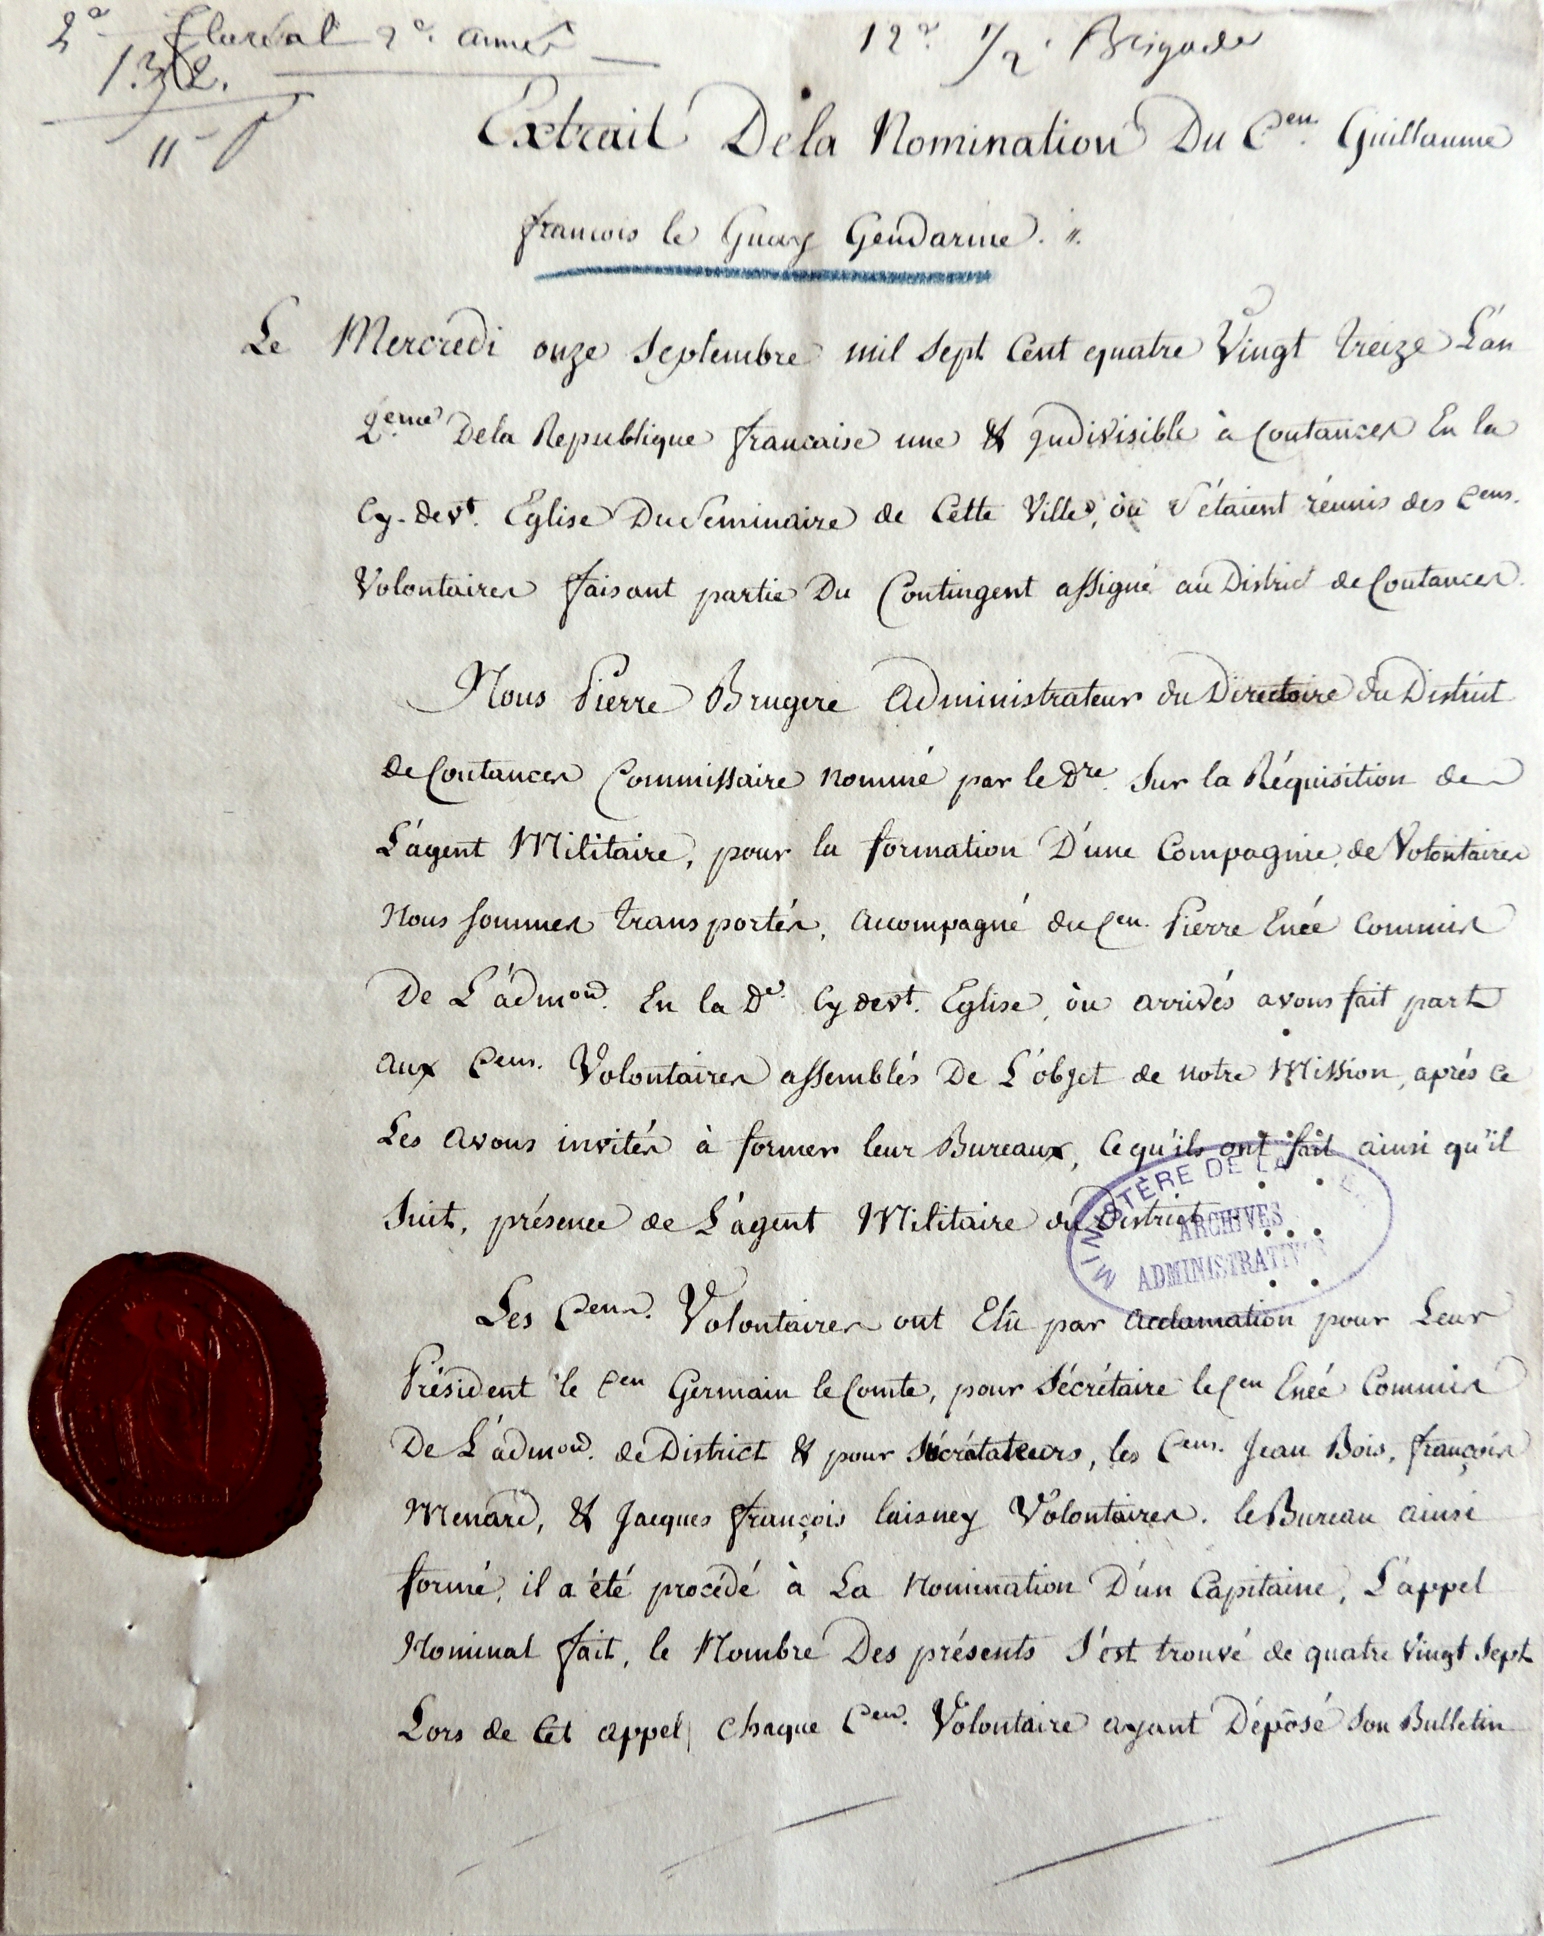 2e Floréal 2e année
12e 1/2 Brigade
1.362.
11
Extrait De la Nomination Du Cen. Guillaume
francois le Guay Gendarme.
Le Mercredi onze Septembre mil Sept Cent quatre Vingt treize L'an
2eme De la Republique francaise une & jndivisible à Coutances En la
Cy-devt. Eglise Du Seminaire de Cette Ville, où s'étaient réunis des Cens.
Volontaires faisant partie Du Contingent assigné au District de Coutances.
Nous Pierre Brugere Administrateur du Directoire du District
de Coutances Commissaire nommé par le Dre. Sur la Réquisition de
L'agent Militaire, pour la formation D'une Compagnie de Volontaires
Nous sommes transportés, accompagné du Cen. Pierre Enée Commis
De L'admon. En la De. Cy devt. Eglise, où arrivés avons fait part
aux Cens. Volontaires assemblés De L'objet de notre Mission, aprés ce
Les avons invités à former leur Bureaux, Ce qu'ils ont fait ainsi qu'il
Suit, présence de L'agent Militaire du District
MINISTÈRE DE LA
ARCHIVES
ADMINISTRATIVES
Les Cens. Volontaires ont Elû par acclamation pour Leur
Président le Cen Germain le Comte, pour Sécrétaire le Cen Enée Commis
De L'admon. de District & pour Scrutateurs, les Cens. Jean Bois, françois
Menard, & Jacques françois laisney Volontaires. le Bureau ainsi
formé, il a été procédé à La Nomination D'un Capitaine, L'appel
Nominal fait, le Nombre Des présents S'est trouvé de quatre vingt Sept
Lors de Cet appel, chaque Cen. Volontaire ayant Déposé Son Bulletin